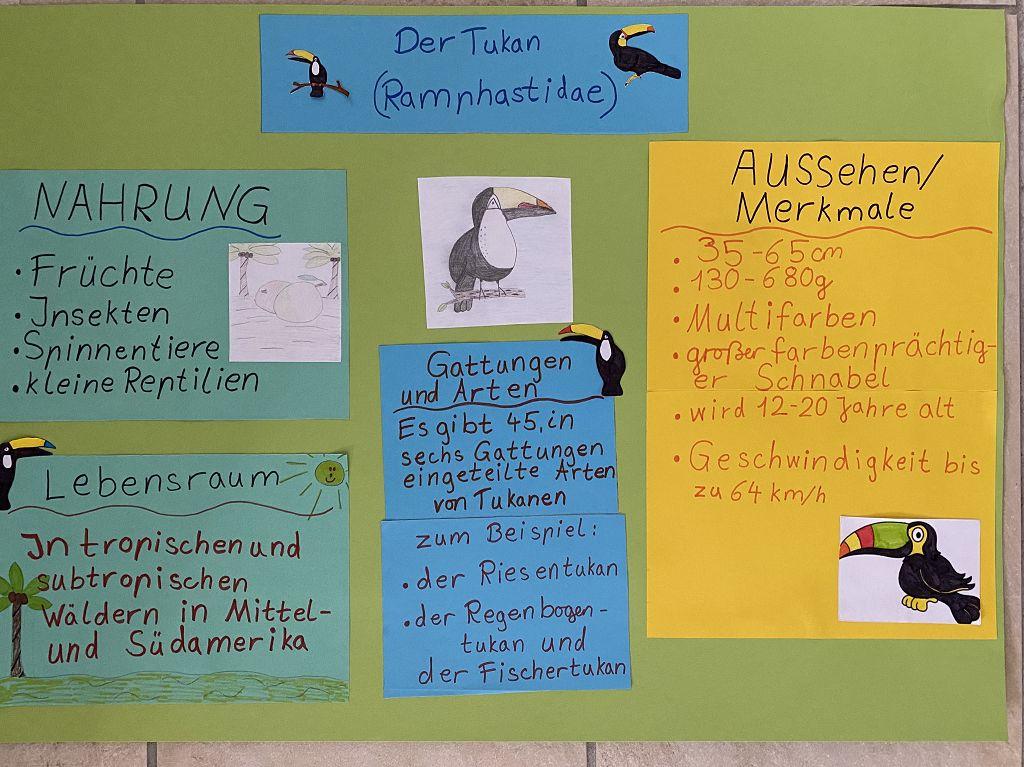 Der Tukan
(Ramphastidae)
NAHRUNG
• Früchte
• Insekten
• Spinnentiere
• kleine Reptilien
Lebensraum
In tropischen und
subtropischen
Wäldern in Mittel-
und Südamerika
Gattungen
und Arten
Es gibt 45, in
sechs Gattungen
eingeteilte Arten
von Tukanen
zum Beispiel:
• der Riesentukan
• der Regenbogen-
tukan und
der Fischertukan
AUSSehen/
Merkmale
• 35-65cm
• 130-680g
• Multifarben
• großer farbenprächtig-
er Schnabel
• wird 12-20 Jahre alt
• Geschwindigkeit bis
zu 64 km/h